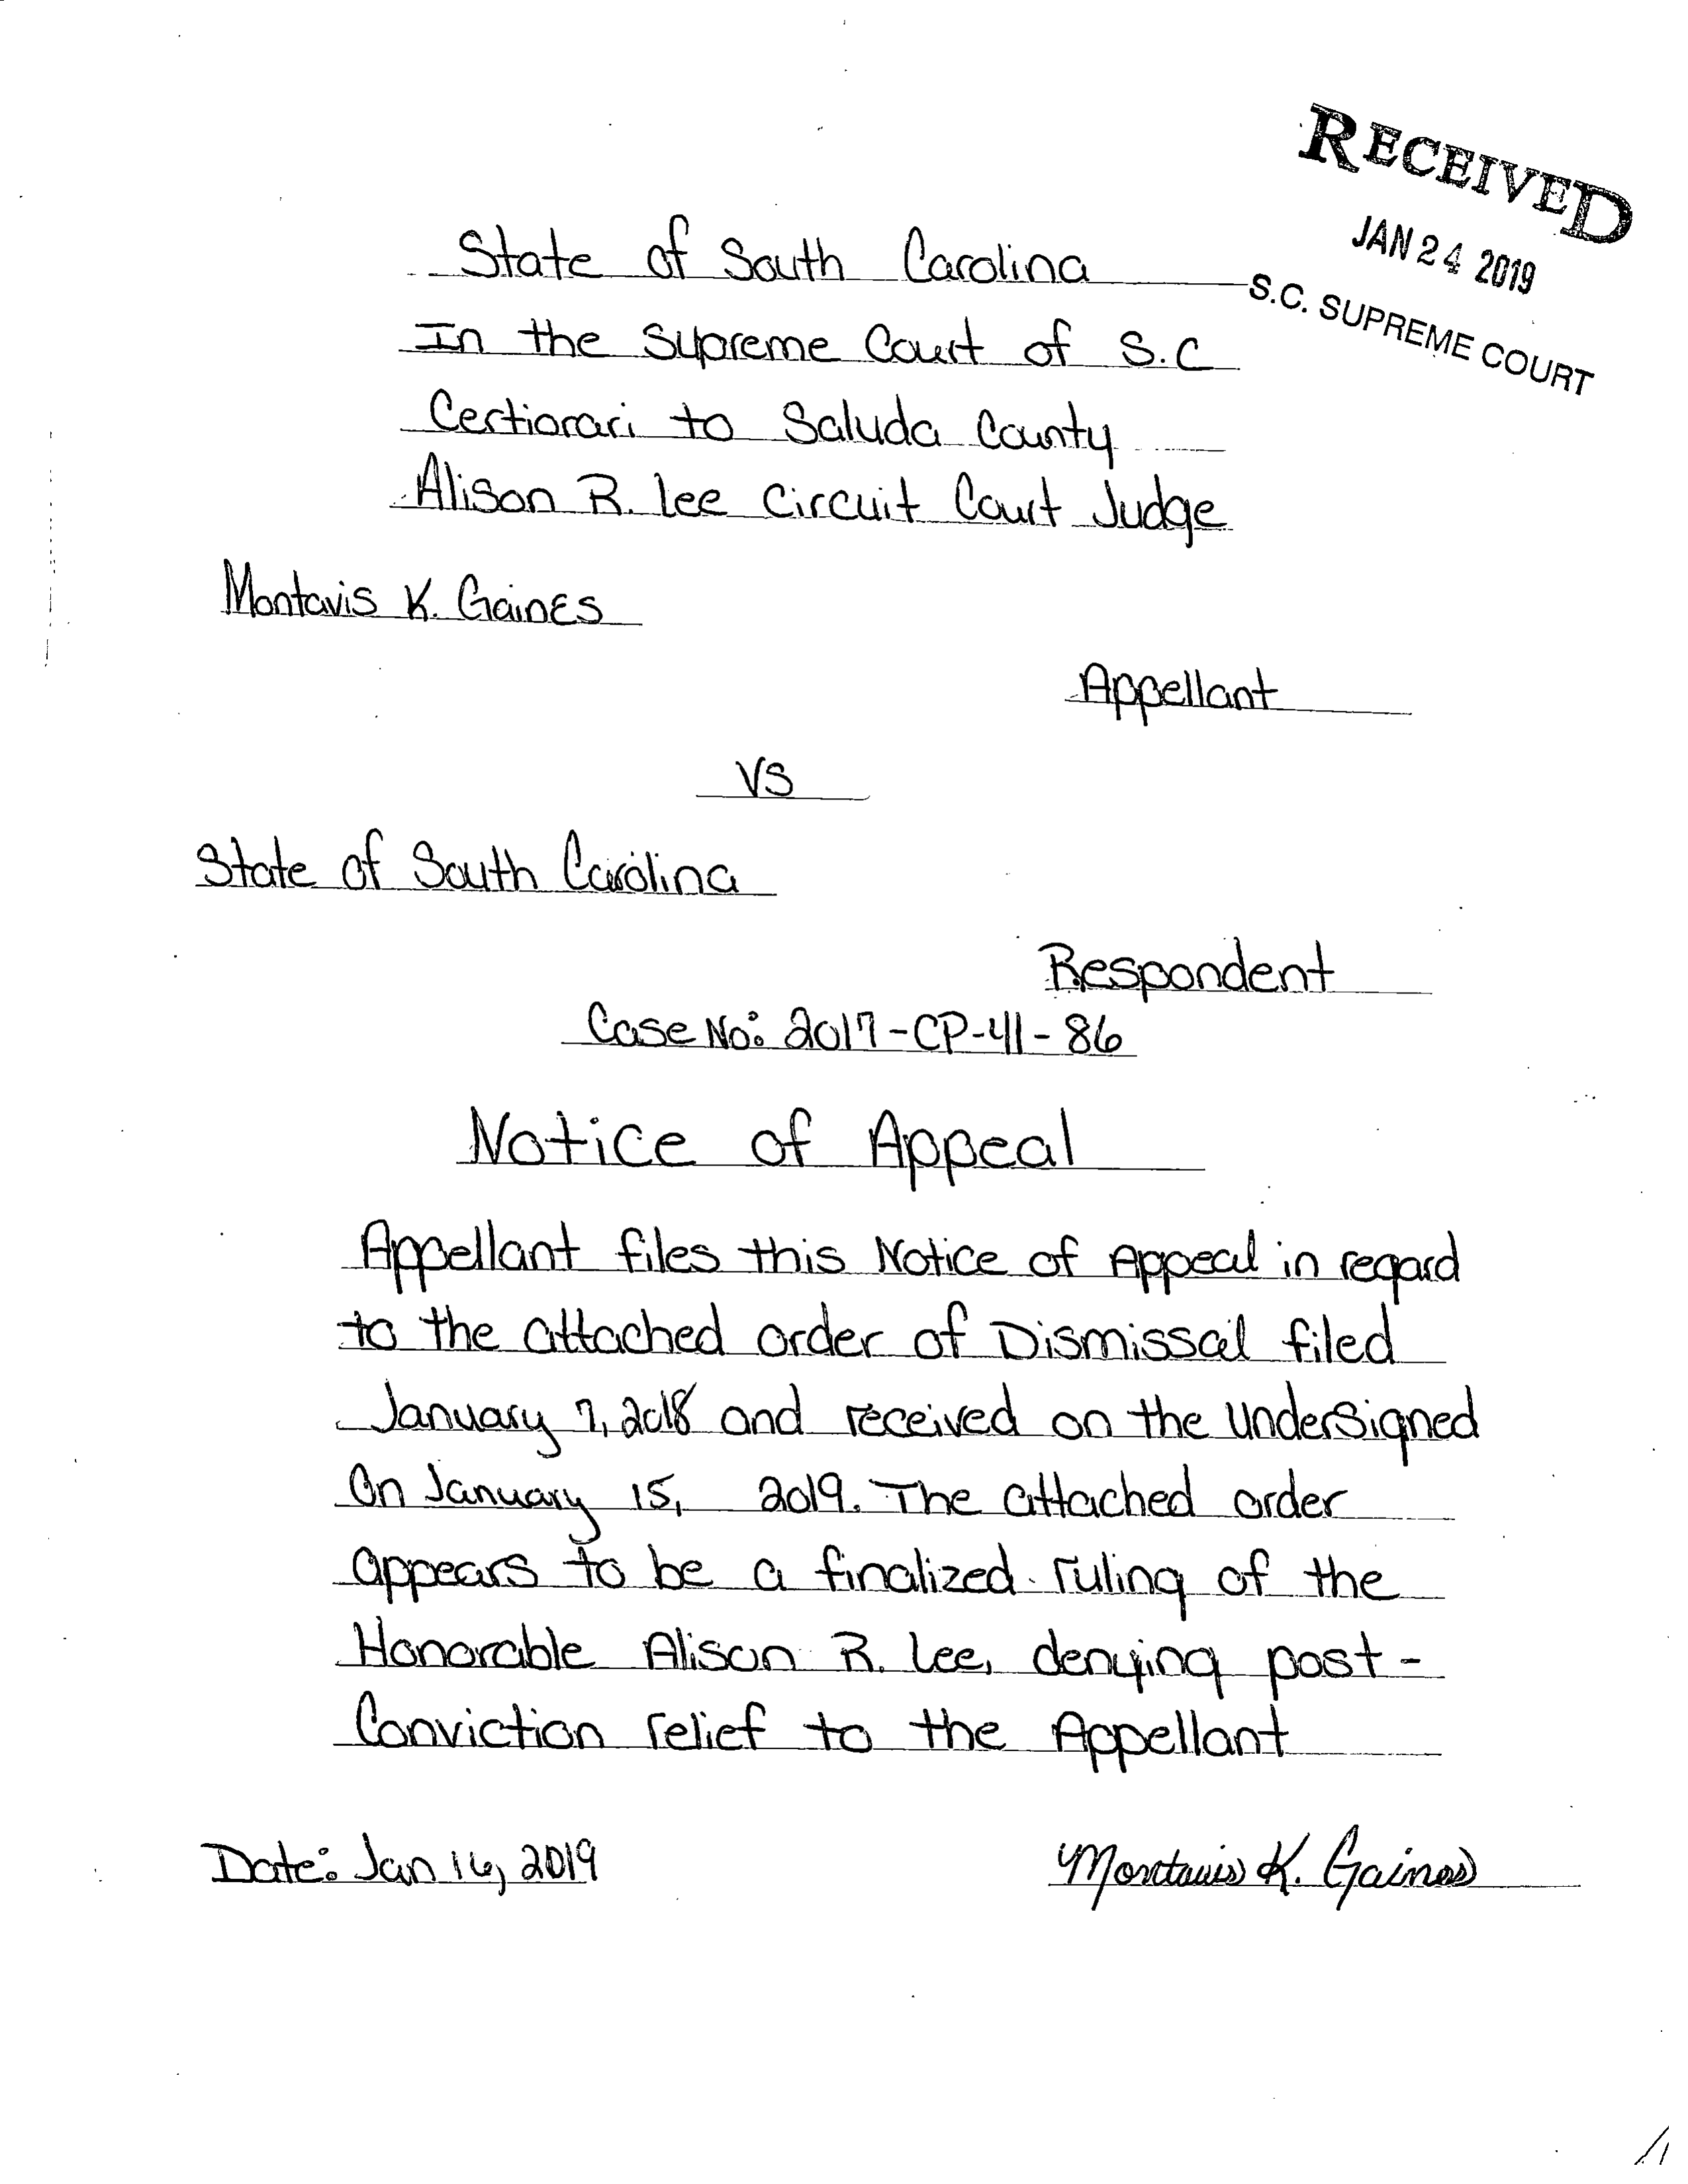 RECEIVED
JAN 24 2019
S.C. SUPREME COURT
State of South Carolina
In the Supreme Court of S.C
Certiorari to Saluda County
Alison R. Lee Circuit Court Judge
Montavis K. Gaines
Appellant
VS
State of South Carolina
Respondent
Case No: 2017-CP-41-86
Notice of Appeal
Appellant files this Notice of Appeal in regard
to the attached order of Dismissal filed
January 7, 2018 and received on the undersigned
On January 15, 2019. The attached order
appears to be a finalized ruling of the
Honorable Alison R. Lee, denying post-
Conviction relief to the Appellant
Date: Jan 16, 2019
Montavis K. Gaines